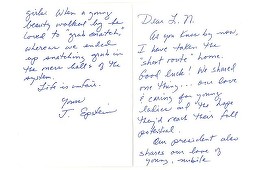 Dear L. N.
As you know by now,
I have taken the
"short route" home.
Good luck! We shared
one thing... our love
& caring for young
ladies and the hope
they'd reach their full
potential.
Our president also
shares our love of
young, nubile
girls. When a young
beauty walked by he
loved to "grab snatch,"
whereas we ended
up snatching grub in
the mess halls of the
system.
Life is unfair.
Yours,
J. Epstein